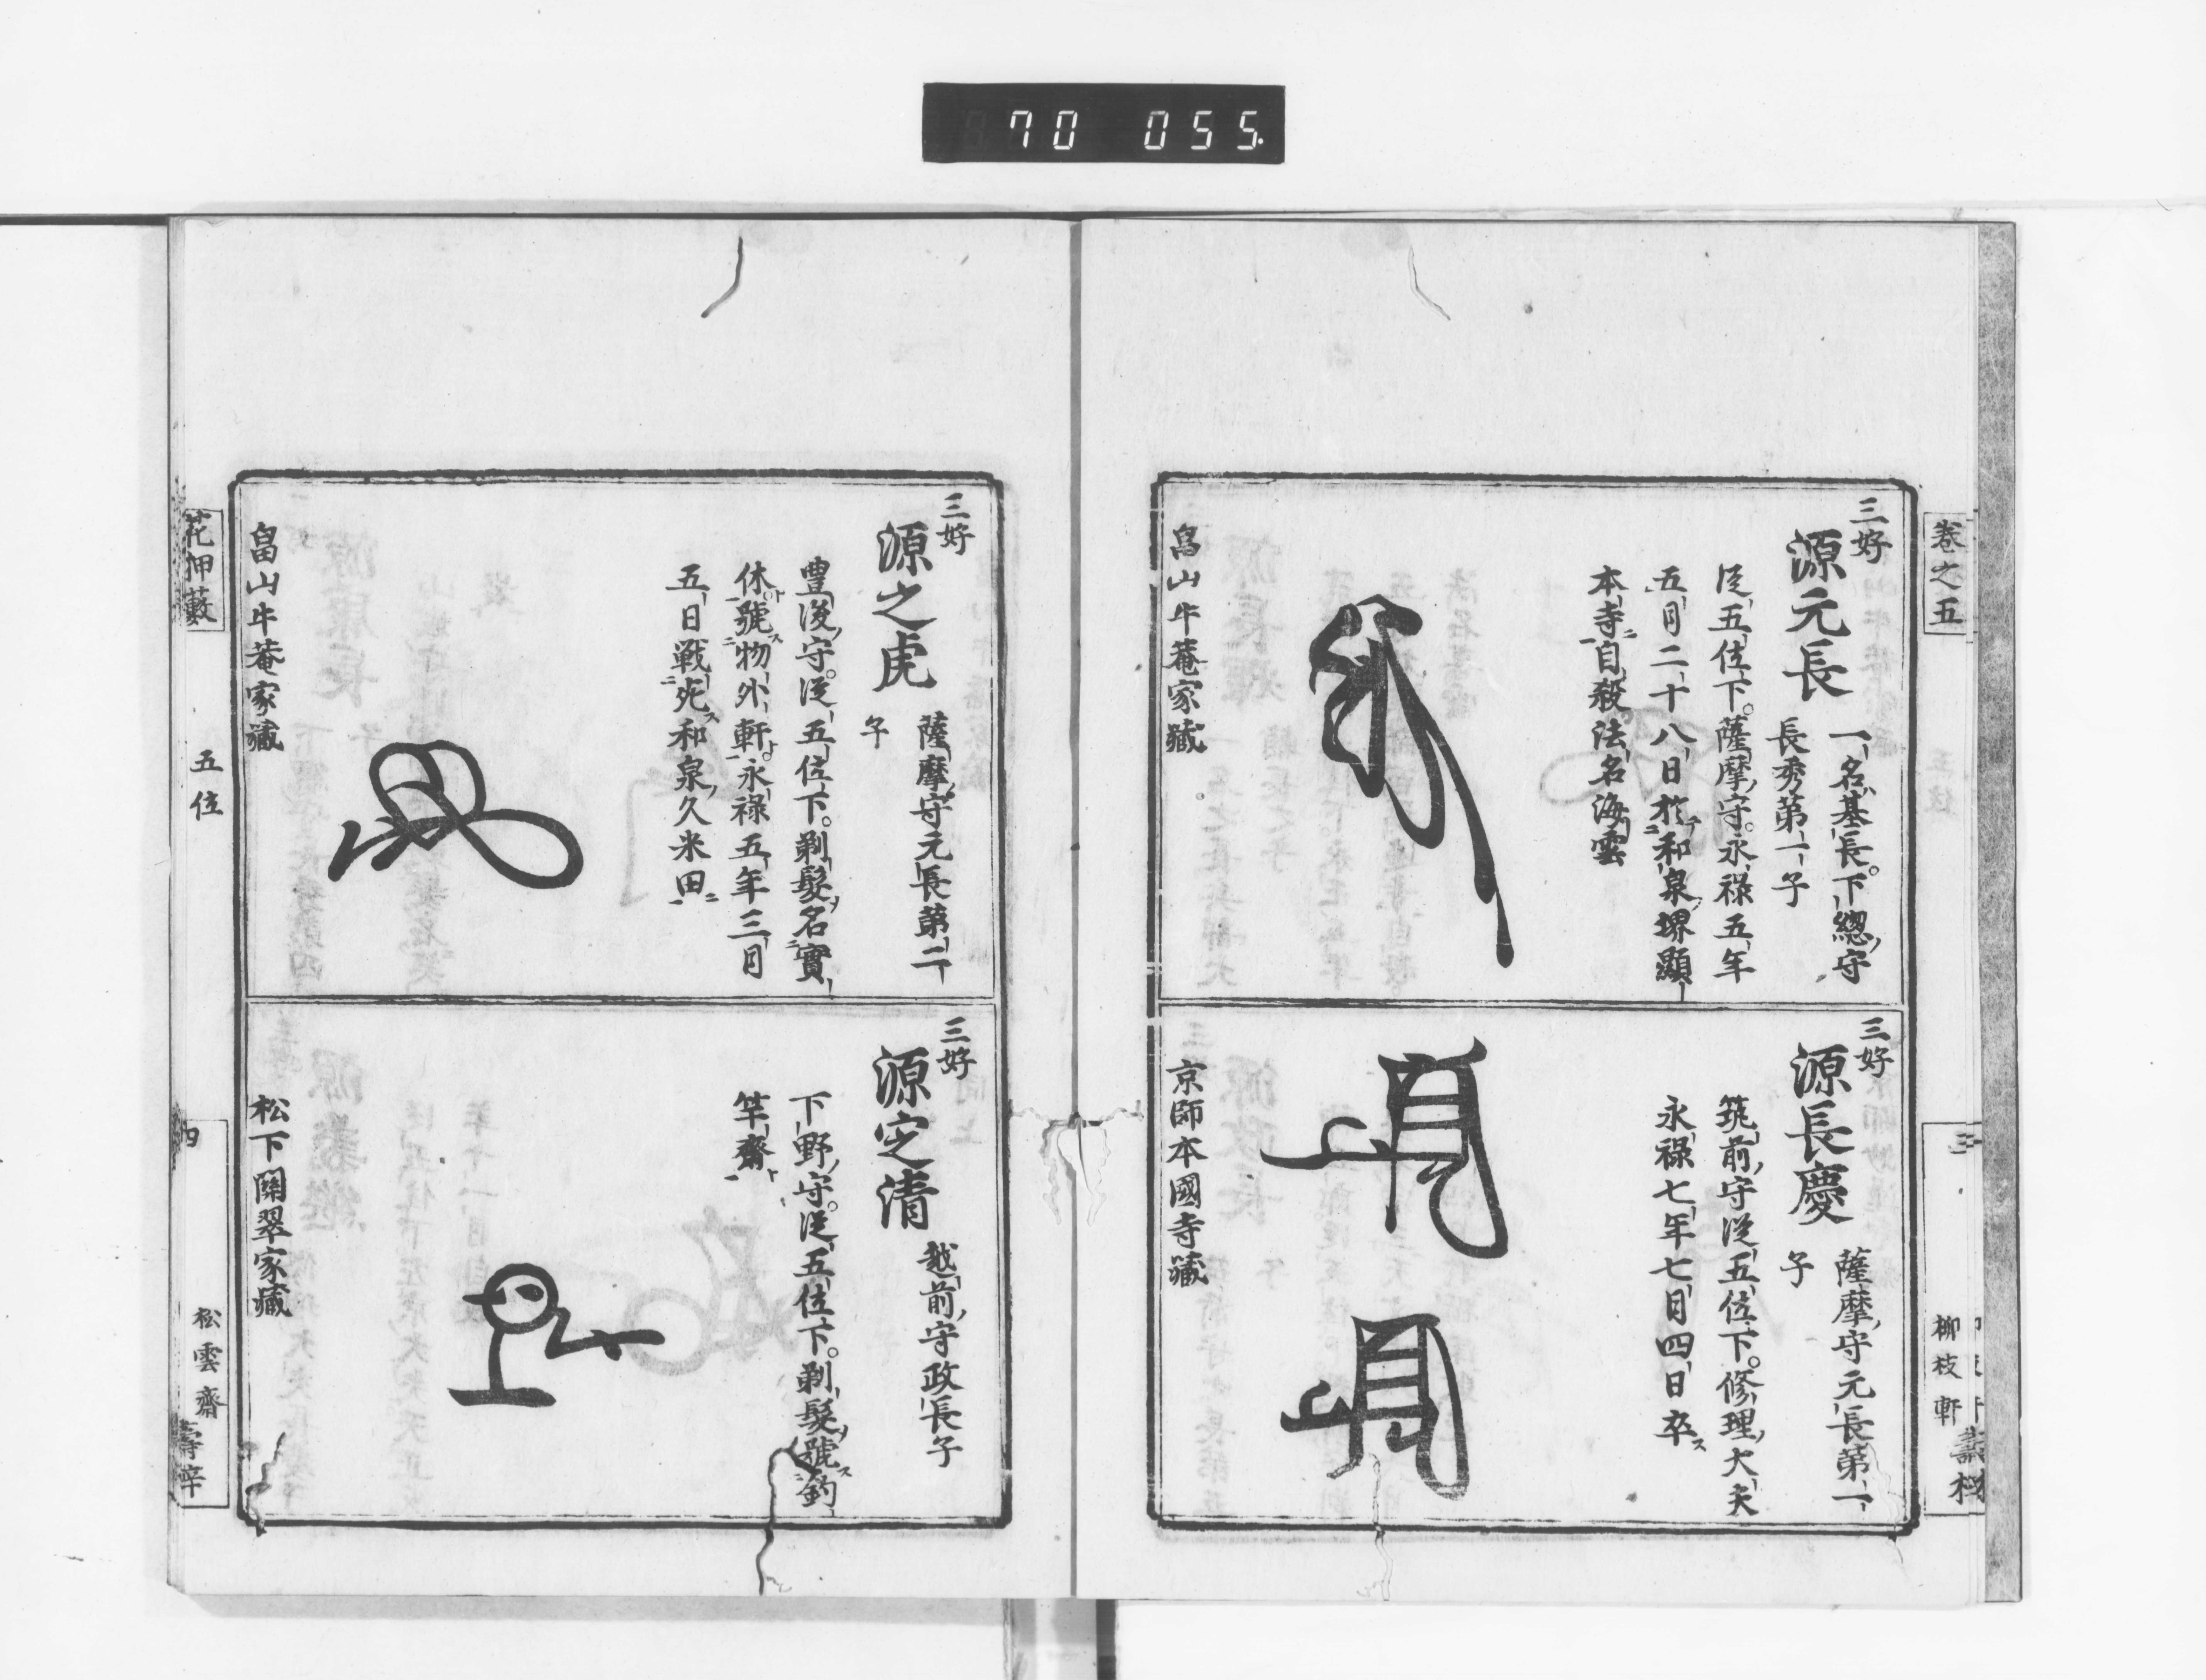 70 055
卷之五
柳枝軒
三好
源元長
一名基長。下總守
長秀第一子
從五位下。薩摩守。永祿五年
五月二十八日於和泉堺顯
本寺自殺法名海雲
畠山牛菴家藏
三好
源長慶
薩摩守元長第一
子
筑前守從五位下。修理大夫
永祿七年七月四日卒
京師本國寺藏
三好
源之虎
薩摩守元長第二
子
豊後守。從五位下。剃髮名實
休號物外軒。永祿五年三月
五日戰死和泉久米田
畠山牛菴家藏
三好
源定清
越前守政長子
下野守。從五位下。剃髮號釣
竿齋
松下關翠家藏
花押藪
五位
四
松雲齋